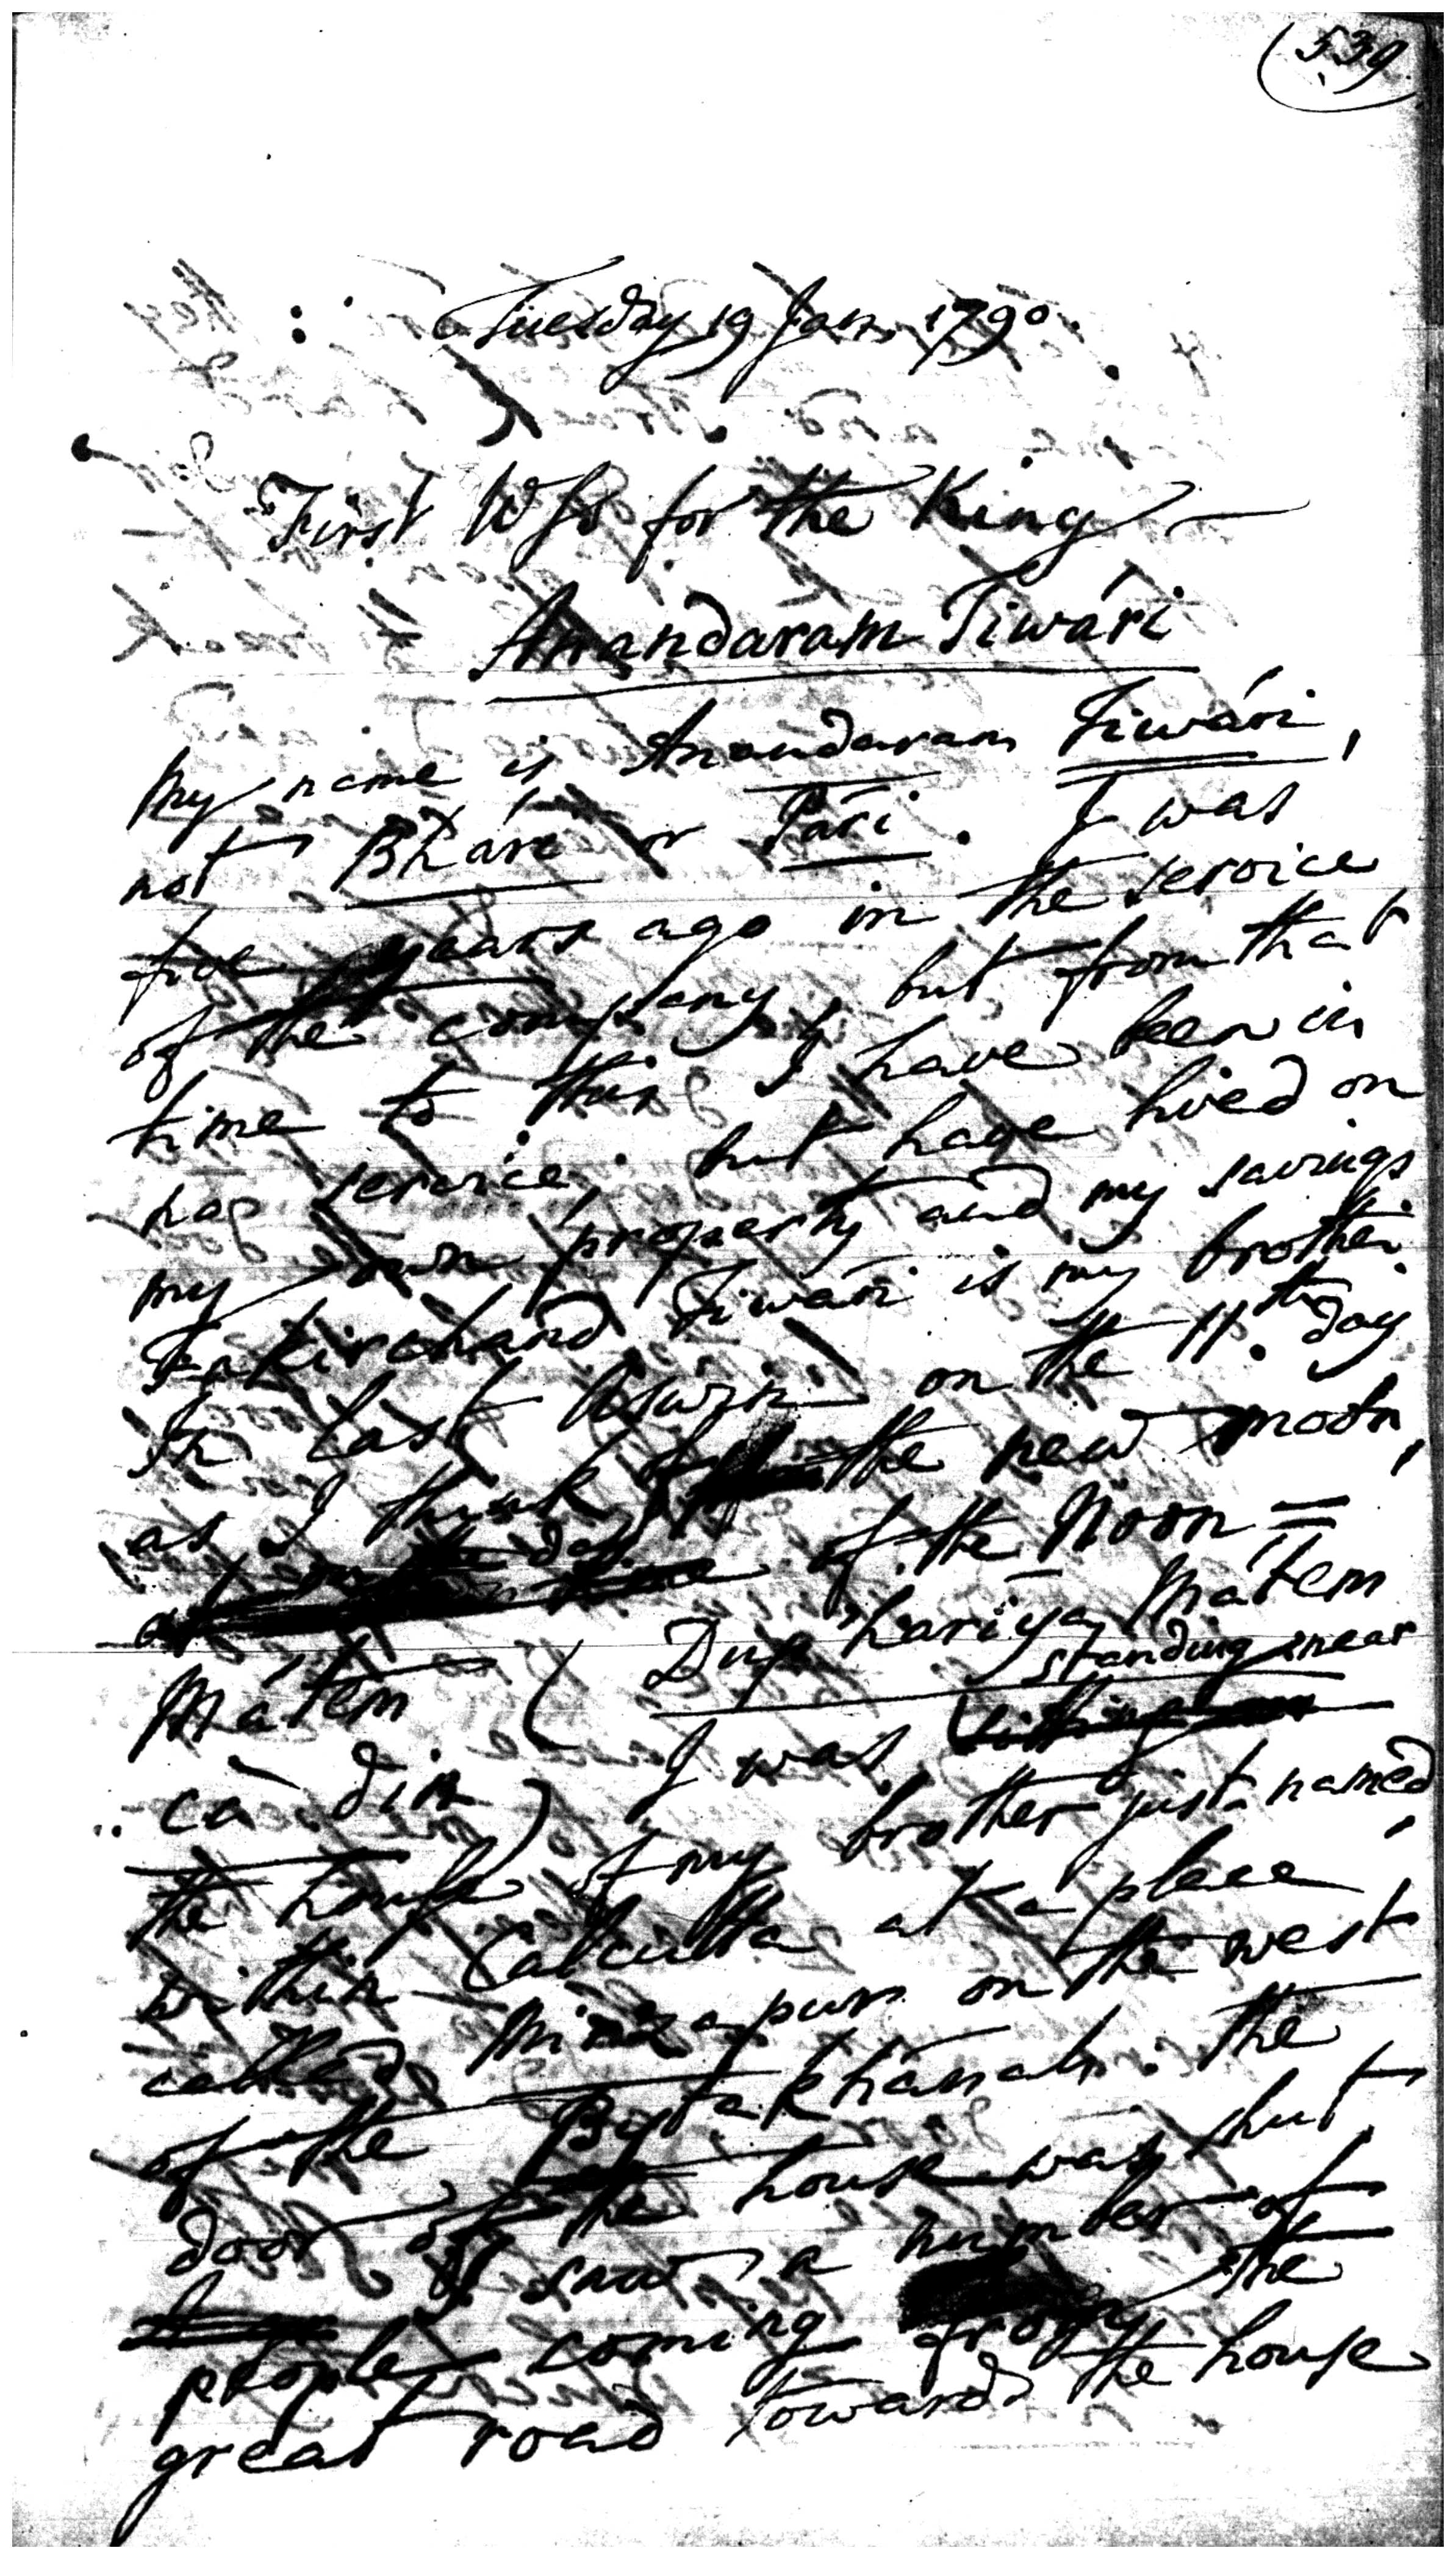 539
Tuesday 19 Jan. 1790.
First Wss for the King —
Anandaram Tiwári
My name is Anandaram Tiwári,
not Bhári or Pári. I was
five years ago in the service
of the company, but from that
time to this I have been in
no service, but have lived on
my own property and my savings
Fakirchand Tiwári is my brother.
In last Aswin on the 11th day
as I think of the new moon,
of the Noon =
Mátem (Dup,hariya Mátem
standing near
ca din) I was
the house of my brother just named
within Calcutta at a place
called Mirzapur on the west
of the Bytakhánah: the
door of the house was shut,
I saw a number of
people coming from the
great road towards the house